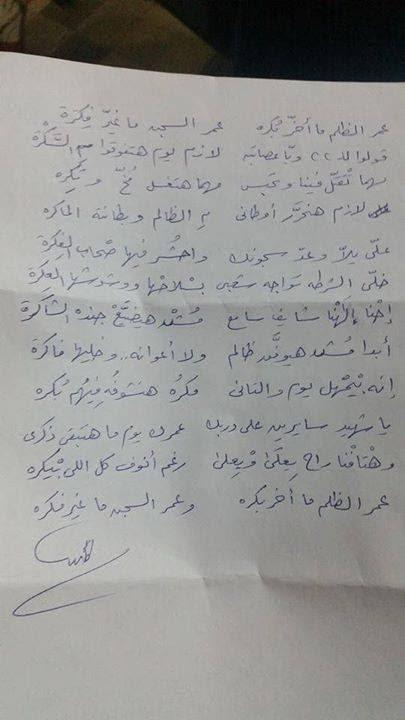 عمر الظلم ما أخّر بُكره عمر السجن ما غيّر فِكرَة
قولوا للـ ٢٢ ويّا عصابته لازم يوم هتفوقوا مِ السَّكْرَة
مهما تْقَتّل فينا وتحبس مهما هتغسل مُخّ وتِكرِه
لازم هنحرّر أوطانى مِ الظالم وبطانته الماكره
علّى يلّا وعدّ سجونك واحشُر فيها صْحاب الفِكرَة
خلّى الشرطه تواجه شعبى بسْلاحْها ووشوشها العِكرَة
إحْنا إلَهْنا شايف سامع مُستَعد هيضَيَّع جنده الشاكرة
أبدا مُستعد هيوفَّق ظالم ولا أعوانه .. وخليها فاكرة
إنه بْيمْهِل يوم والتانى مَكرُه هنشوفُه فِيهُم بُكره
يا شهيد سايرين على دربك عمرك يوم ما هتبقى ذكرى
وهْتافْنا راح يِعلَى وْيِعلى رغم أنوف كل اللى بْيكره
عمر الظلم ما أخر بكره وعمر السجن ما غير فكره